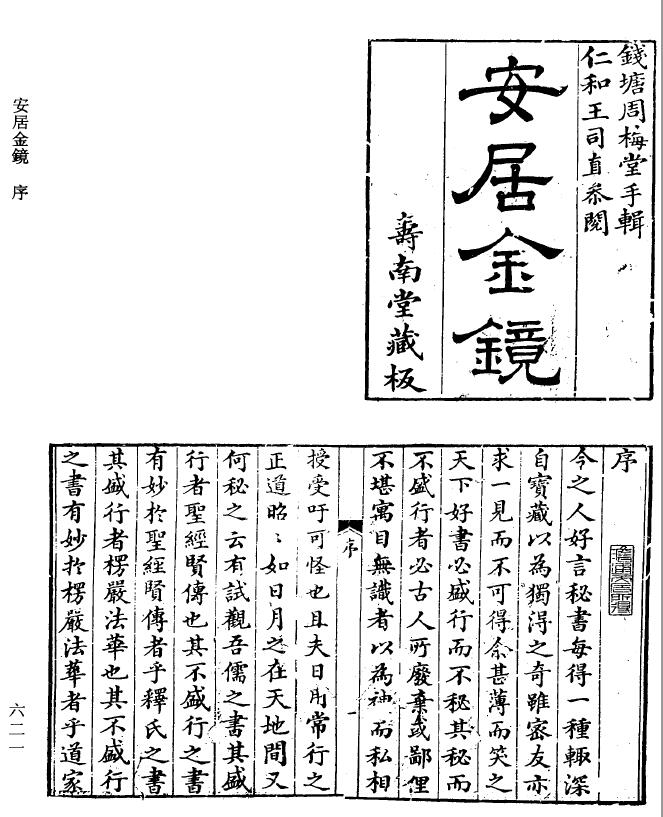 錢塘周梅堂手輯
仁和王司直叅閱
安居金鏡
壽南堂藏板
安居金鏡 序
序
今之人好言秘書每得一種輙深
自寶藏以為獨得之奇雖密友亦
求一見而不可得余甚薄而笑之
天下好書必盛行而不秘其秘而
不盛行者必古人所廢棄或鄙俚
不堪寓目無識者以為神而私相
序
一
授受吁可怪也且夫日用常行之
正道昭〻如日月之在天地間又
何秘之云有試觀吾儒之書其盛
行者聖經賢傳也其不盛行之書
有妙於聖經賢傳者乎釋氏之書
其盛行者楞嚴法華也其不盛行
之書有妙於楞嚴法華者乎道家
六二一